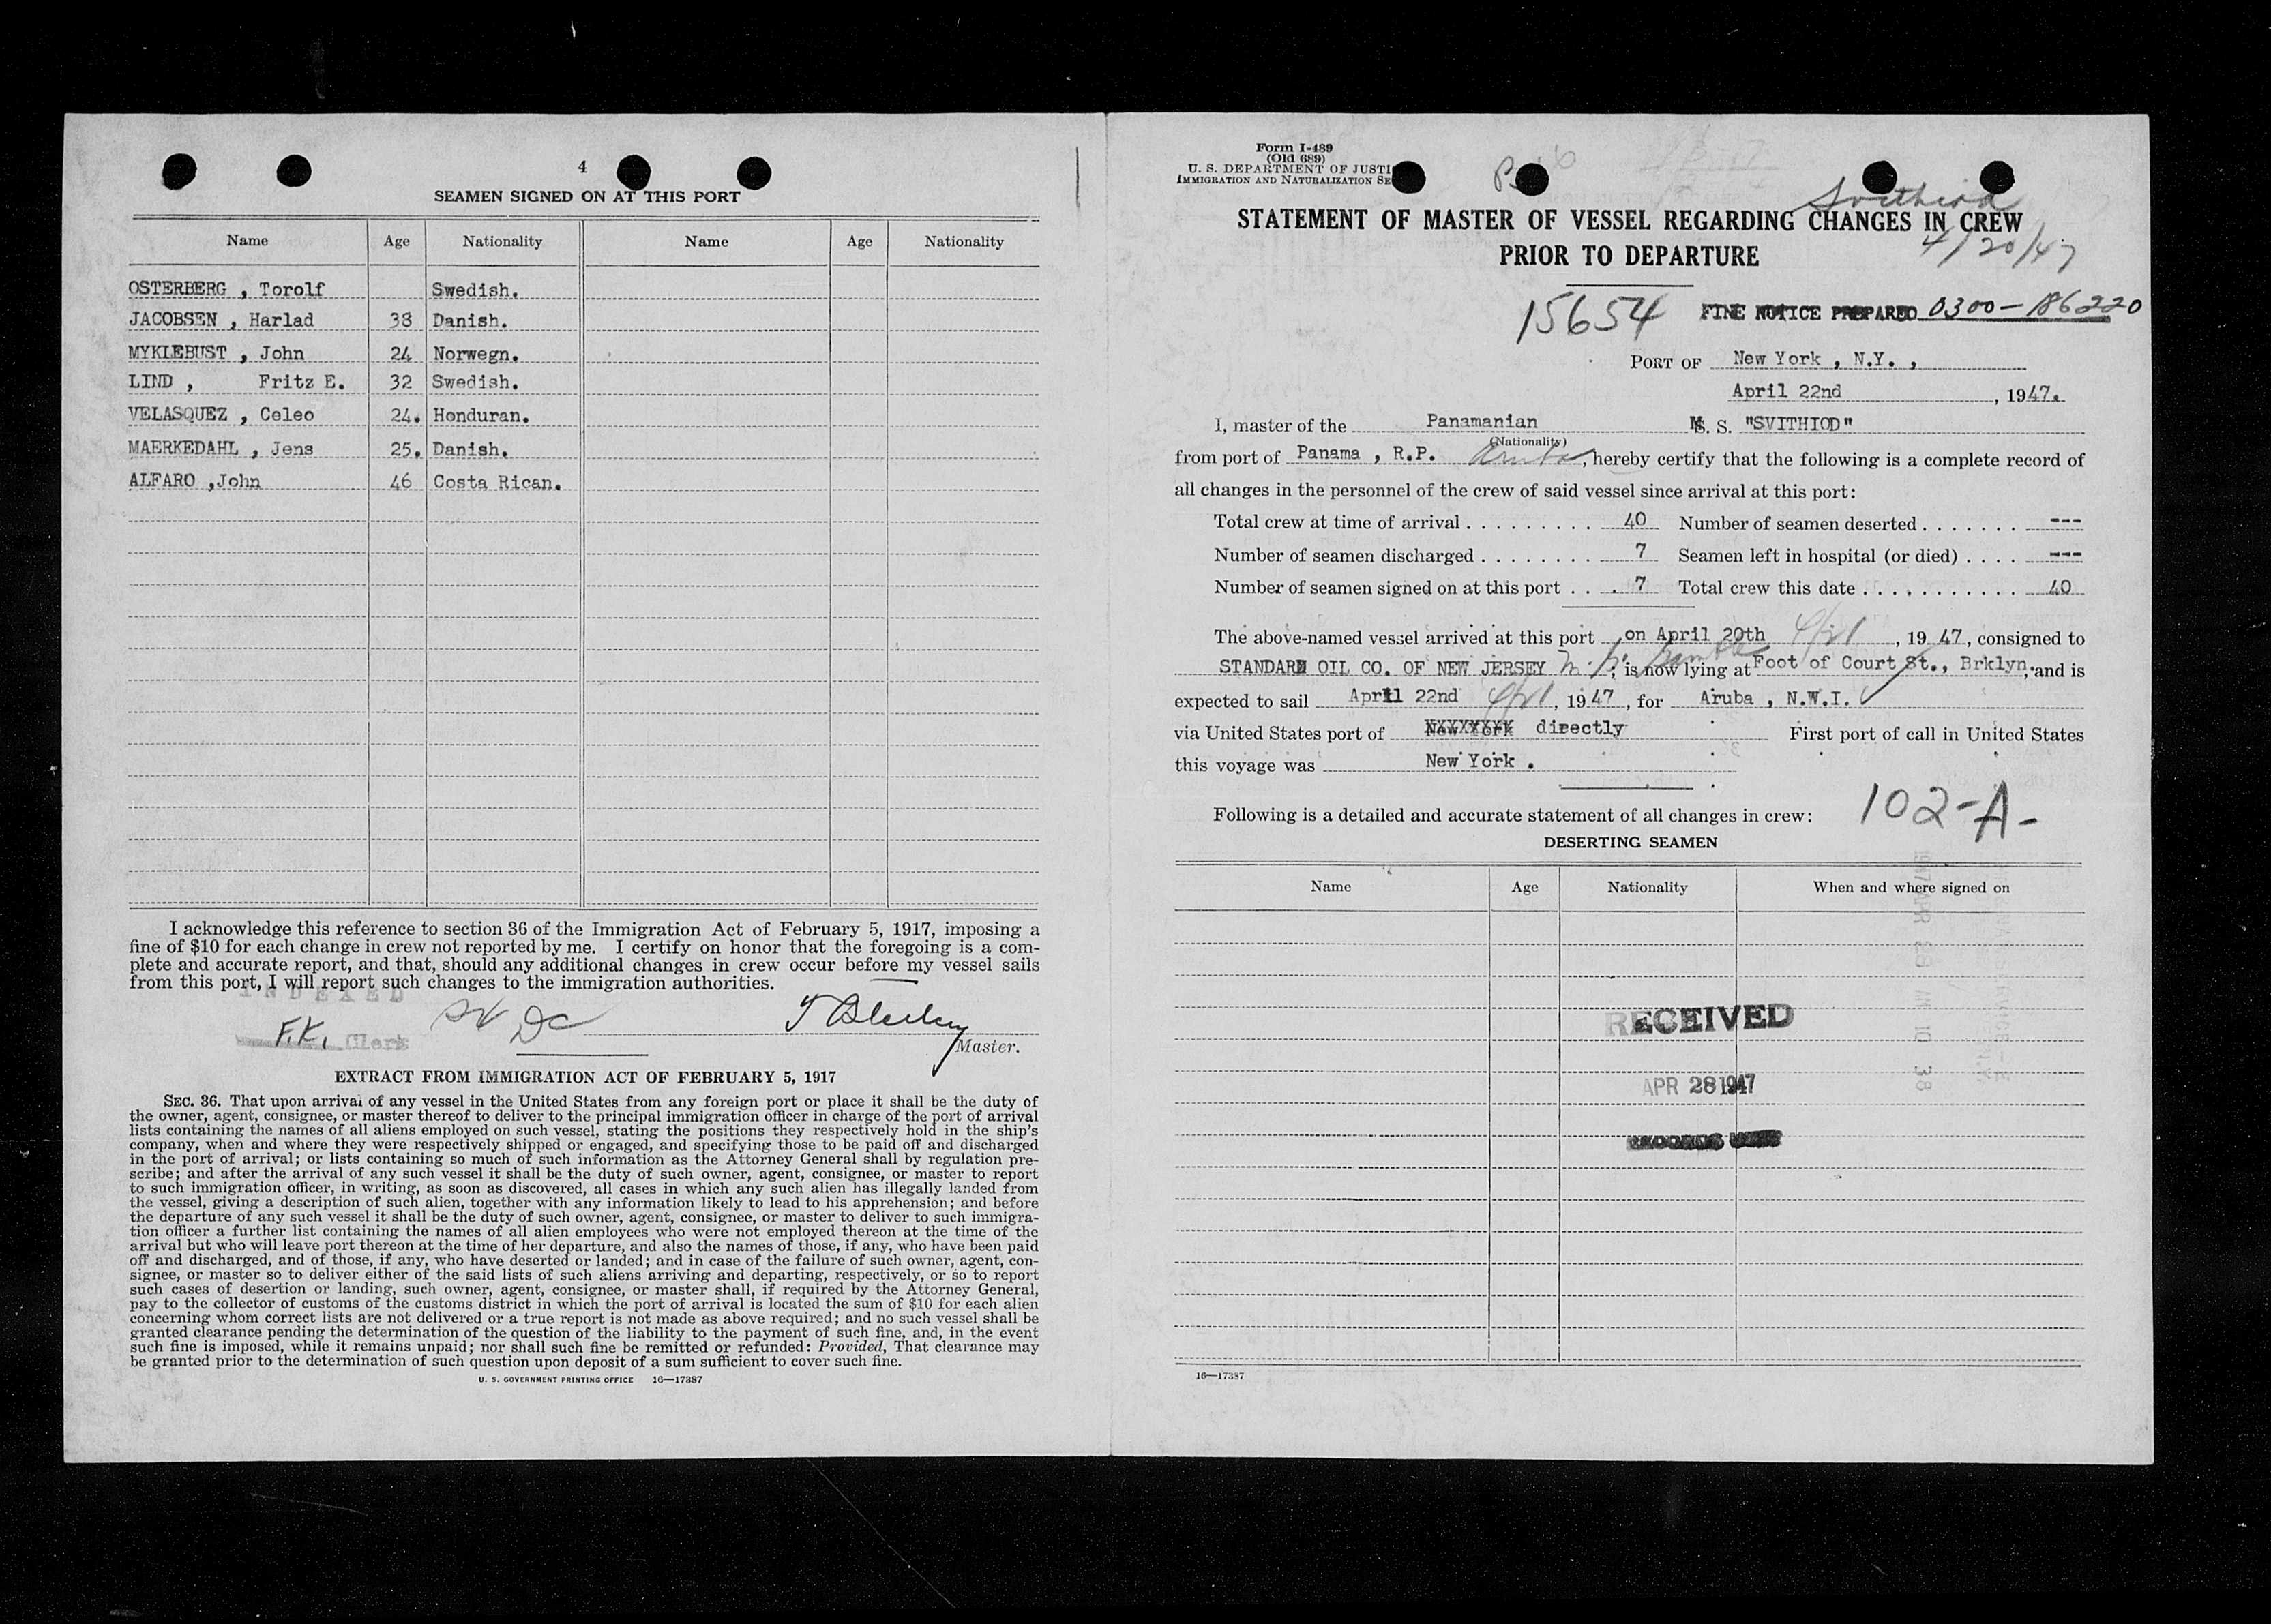 4
SEAMEN SIGNED ON AT THIS PORT
Name Age Nationality Name Age Nationality
OSTERBERG , Torolf Swedish.
JACOBSEN , Harlad 38 Danish.
MYKLEBUST , John 24 Norwegn.
LIND , Fritz E. 32 Swedish.
VELASQUEZ , Celeo 24. Honduran.
MAERKEDAHL , Jens 25. Danish.
ALFARO ,John 46 Costa Rican.
I acknowledge this reference to section 36 of the Immigration Act of February 5, 1917, imposing a
fine of $10 for each change in crew not reported by me. I certify on honor that the foregoing is a com-
plete and accurate report, and that, should any additional changes in crew occur before my vessel sails
from this port, I will report such changes to the immigration authorities.
INDEXED
F.K. Clerk
Master.
EXTRACT FROM IMMIGRATION ACT OF FEBRUARY 5, 1917
SEC. 36. That upon arrival of any vessel in the United States from any foreign port or place it shall be the duty of
the owner, agent, consignee, or master thereof to deliver to the principal immigration officer in charge of the port of arrival
lists containing the names of all aliens employed on such vessel, stating the positions they respectively hold in the ship's
company, when and where they were respectively shipped or engaged, and specifying those to be paid off and discharged
in the port of arrival; or lists containing so much of such information as the Attorney General shall by regulation pre-
scribe; and after the arrival of any such vessel it shall be the duty of such owner, agent, consignee, or master to report
to such immigration officer, in writing, as soon as discovered, all cases in which any such alien has illegally landed from
the vessel, giving a description of such alien, together with any information likely to lead to his apprehension; and before
the departure of any such vessel it shall be the duty of such owner, agent, consignee, or master to deliver to such immigra-
tion officer a further list containing the names of all alien employees who were not employed thereon at the time of the
arrival but who will leave port thereon at the time of her departure, and also the names of those, if any, who have been paid
off and discharged, and of those, if any, who have deserted or landed; and in case of the failure of such owner, agent, con-
signee, or master so to deliver either of the said lists of such aliens arriving and departing, respectively, or so to report
such cases of desertion or landing, such owner, agent, consignee, or master shall, if required by the Attorney General,
pay to the collector of customs of the customs district in which the port of arrival is located the sum of $10 for each alien
concerning whom correct lists are not delivered or a true report is not made as above required; and no such vessel shall be
granted clearance pending the determination of the question of the liability to the payment of such fine, and, in the event
such fine is imposed, while it remains unpaid; nor shall such fine be remitted or refunded: Provided, That clearance may
be granted prior to the determination of such question upon deposit of a sum sufficient to cover such fine.
U. S. GOVERNMENT PRINTING OFFICE 16—17387
Form I-489
(Old 689)
U. S. DEPARTMENT OF JUSTI
IMMIGRATION AND NATURALIZATION SE
Svithiod
STATEMENT OF MASTER OF VESSEL REGARDING CHANGES IN CREW
PRIOR TO DEPARTURE
4/20/47
15654 FINE NOTICE PREPARED 0300-186220
PORT OF New York , N.Y. ,
April 22nd , 1947.
I, master of the Panamanian M. S. "SVITHIOD"
(Nationality)
from port of Panama , R.P. Aruba, hereby certify that the following is a complete record of
all changes in the personnel of the crew of said vessel since arrival at this port:
Total crew at time of arrival . . . . . . . . . 40 Number of seamen deserted . . . . . . . ---
Number of seamen discharged . . . . . . . . 7 Seamen left in hospital (or died) . . . . ---
Number of seamen signed on at this port . . . 7 Total crew this date . . . . . . . . . . . 40
The above-named vessel arrived at this port on April 20th 4/21, 19 47, consigned to
STANDARD OIL CO. OF NEW JERSEY ; is now lying at Foot of Court St., Brklyn. and is
expected to sail April 22nd 4/21, 19 47, for Aruba , N.W.I.
via United States port of New York directly First port of call in United States
this voyage was New York .
Following is a detailed and accurate statement of all changes in crew: 102-A-
DESERTING SEAMEN
Name Age Nationality When and where signed on
RECEIVED
APR 28 1947
RECORDS UNIT
16—17387